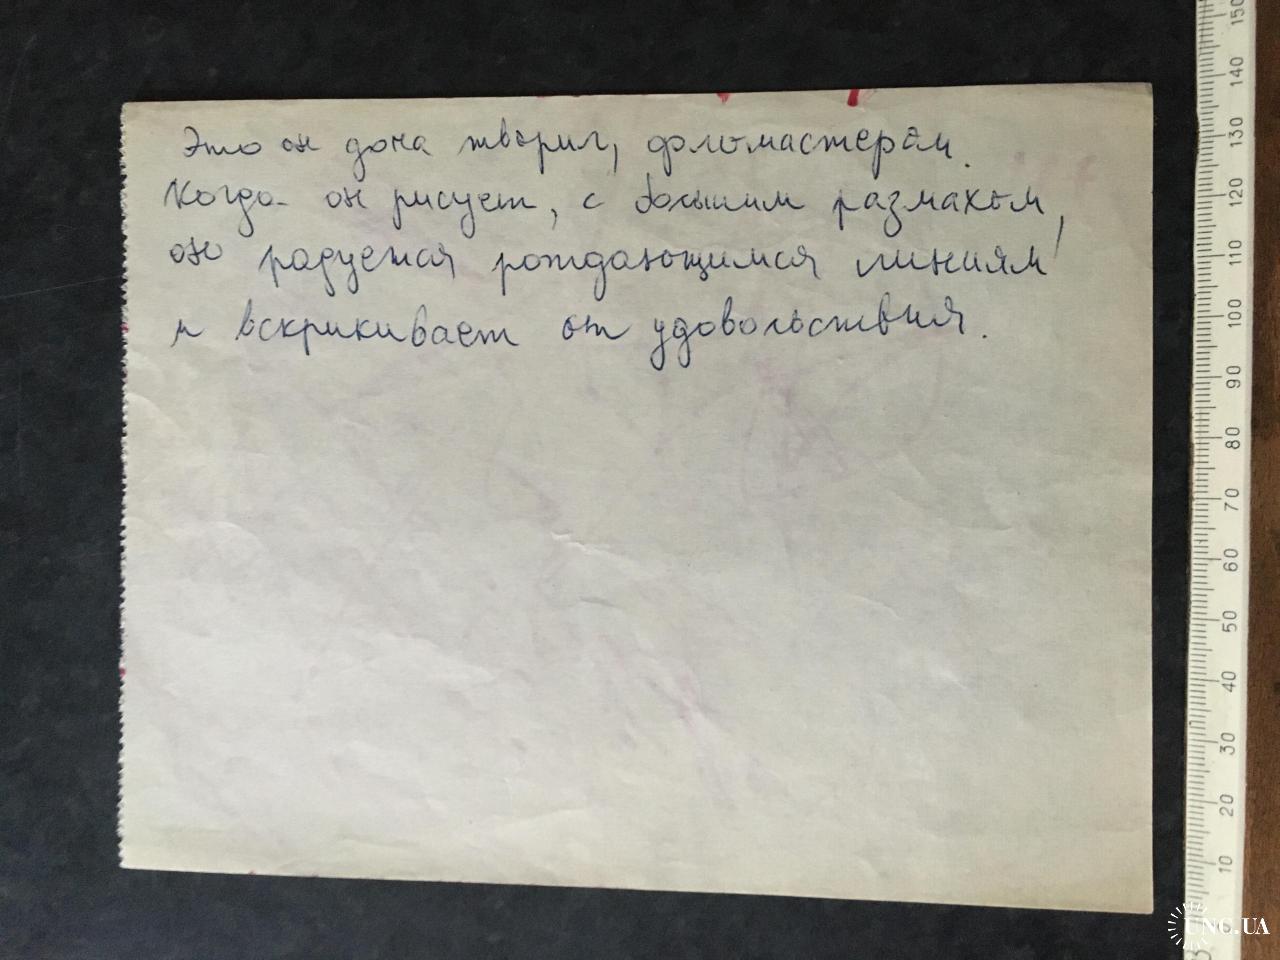 Это он дома творил, фломастерам.
Когда он рисует, с большим размахом,
он радуется рождающимся линиям
и вскрикивает от удовольствия.
150
140
130
120
110
100
90
80
70
60
50
40
30
20
10
UNC.UA